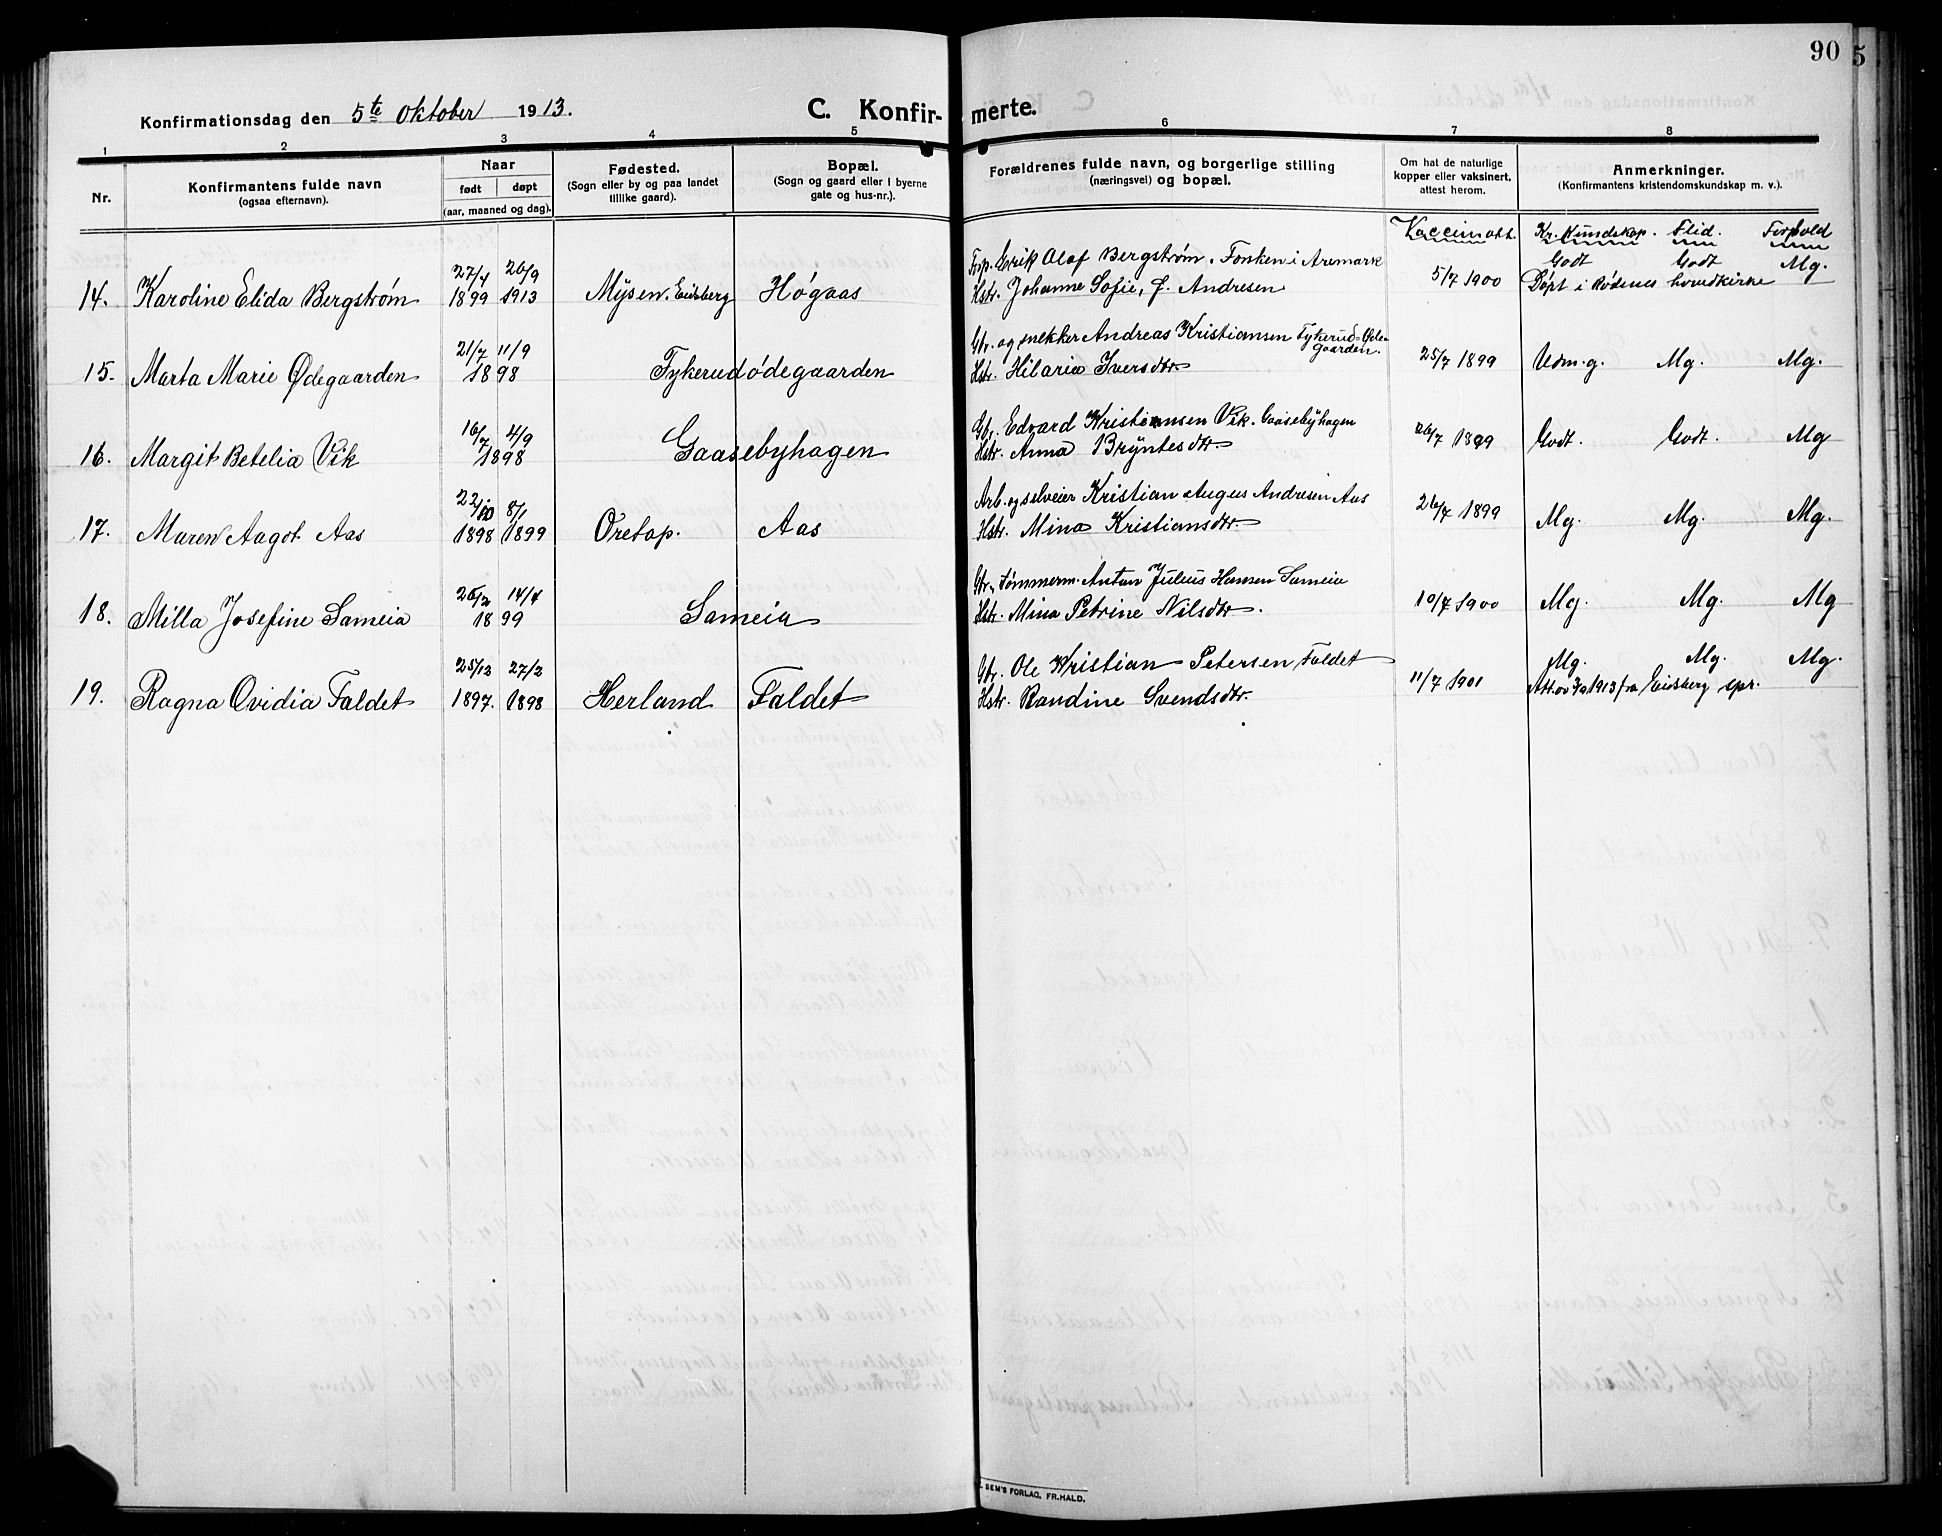 90
5
Konfirmationsdag den 5te Oktober 1913.
C. Konfirmerte.
1 2 3 4 5 6 7 8
Nr.
Konfirmantens fulde navn
(ogsaa efternavn).
Naar
født døpt
(aar, maaned og dag).
Fødested.
(Sogn eller by og paa landet
tillike gaard).
Bopæl.
(Sogn og gaard eller i byerne
gate og hus-nr.).
Forældrenes fulde navn, og borgerlige stilling
(næringsvei) og bopæl.
Om hat de naturlige
kopper eller vaksinert,
attest herom.
Anmerkninger.
(Konfirmantens kristendomskundskap m. v.).
Vaccinatt. Kr. Kundskap. Flid. Forhold
14. Karoline Elida Bergstrøm 27/4 1899 26/9 1913 Mysen, Eidsberg Høgaas
Forp. Erik Olaf Bergstrøm, Fonken i Aremark
Hstr. Johanne Sofie, f. Andresen
5/7 1900 Godt Godt Mg.
Døpt i Rødenes hovedkirke
15. Marta Marie Ødegaarden 21/7 11/9 1898 Tykerudødegaarden
Gbr. og snekker Andreas Kristiansen Tykerud-Øde-
gaarden.
Hstr. Hilaria Iversdtr.
25/7 1899 Udm. g. Mg. Mg.
16. Margit Betelia Vik 16/7 4/9 1898 Gaasebyhagen
Gbr. Edvard Kristiansen Vik. Gaasebyhagen
Hstr. Anna Bryntesdtr.
26/7 1899 Godt. Godt. Mg
17. Maren Aagot Aas 22/10 1898 8/1 1899 Oretop. Aas
Arb. og selveier Kristian August Andresen Aas
Hstr. Mina Kristiansdtr.
26/7 1899 Mg. Mg. Mg.
18. Milla Josefine Sameia 26/2 14/4 1899 Sameia
Gbr. tømmerm. Anton Julius Hansen Sameia
Hstr. Mina Petrine Nilsdtr.
10/7 1900 Mg. Mg. Mg
19. Ragna Ovidia Faldet 25/12 1897. 27/2 1898 Herland Faldet
Gbr. Ole Kristian Petersen Faldet
Hstr. Randine Svendsdtr.
11/7 1901 Mg. Mg. Mg.
1913 fra Eidsberg spr.
SEM'S FORLAG, FR.HALD.